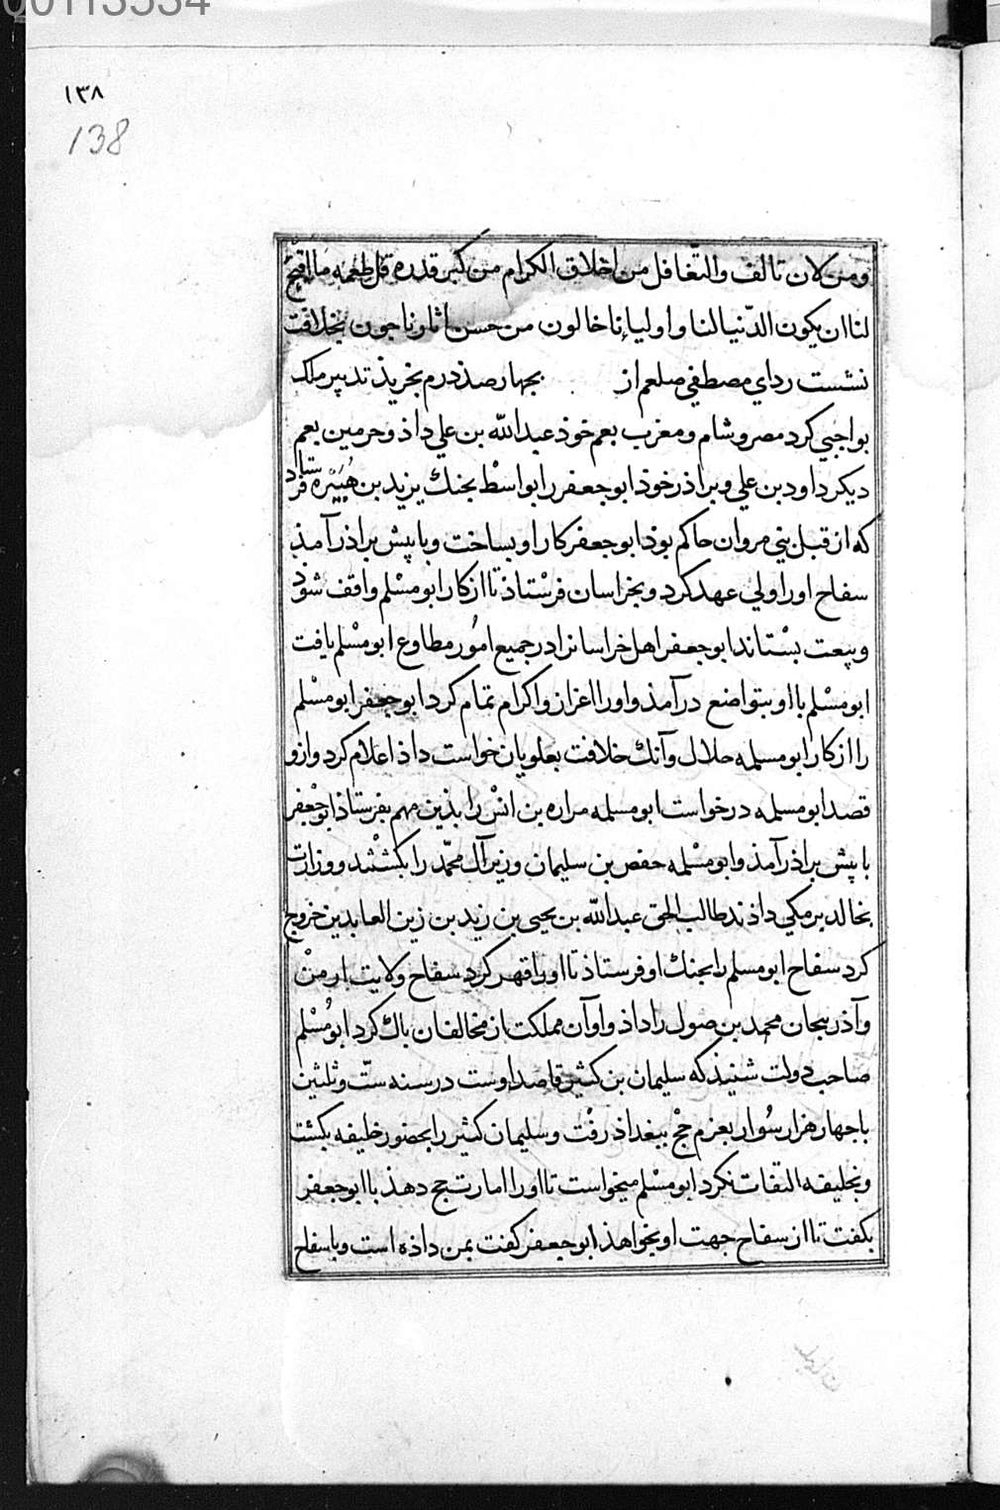 00113534
١٣٨
138
ومن لان تالف والتغافل من اخلاق الكرام من كبر قدره قل طعمه ما اقبح
لنا ان يكون الدّنيا لنا و اوليإنا خالون من حسن اثارنا چون بخلافت
نشست رداي مصطفي صلعم از بجهار صذ درم بخريذ تدبير ملك
بواجبي كرد مصر و شام و مغرب بعم خوذ عبد الله بن علي داذ و حرمين بعم
ديكر داود بن علي و براذر خوذ ابو جعفر را بواسْط بجنك يزيد بن هُبَيْره فرستاد
كه از قبل بني مروان حاكم بوذ ابو جعفر كار او بساخت و با پيش براذر آمذ
سفاح اورا ولي عهد كرد و بخراسان فرسْتاذ تا از كار ابو مسْلم واقف شوذ
و بيعت بسْتاند ابو جعفر اهل خراسانرا در جميع امُور مطاوع ابو مسْلم يافت
ابو مسْلم با او بتواضع در آمذ و اورا اعزاز و اكرام تمام كرد ابو جعفر ابو مسْلم
را از كار ابو مسلمه حلال و آنك خلافت بعلويان خواست داذ اعلام كرد و ازو
قصد ابو مسلمه درخواست ابو مسلمه مراره بن انسْ را بذين مهم بفرستاذ ابو جعْفر
با پيش براذر آمذ و ابو مسْلمه حفص بن سليمان وزير آل محمّد را بكشْتند و وزارت
بخالد برمكي داذند طالب الحق عبد الله بن يحيى بن زيد بن زين العابدين خروج
كرد سفاح ابو مسلم را بجنك او فرستاذ تا اورا قهر كرد سفاح ولايت ارمنْ
و آذربيجان محمد بن صول را داذ و او آن مملكت از مخالفان باك كرد ابو مُسْلم
صاحب دولت شنيذ كه سليمان بن كثير قاصد اوست در سنه ستّ و ثلثين
با جهار هزار سُوار بعزم حجْ ببغداذ رفْت و سليمان كثير را بحضور خليفه بكشت
و بخليفه التفات نكرد ابو مسْلم ميخواست تا اورا امارت حج دهذ با ابو جعفر
بكفت تا از سفاح جهت او بخواهذ ابو جعفر كفت بمن داذه است و با سفاح